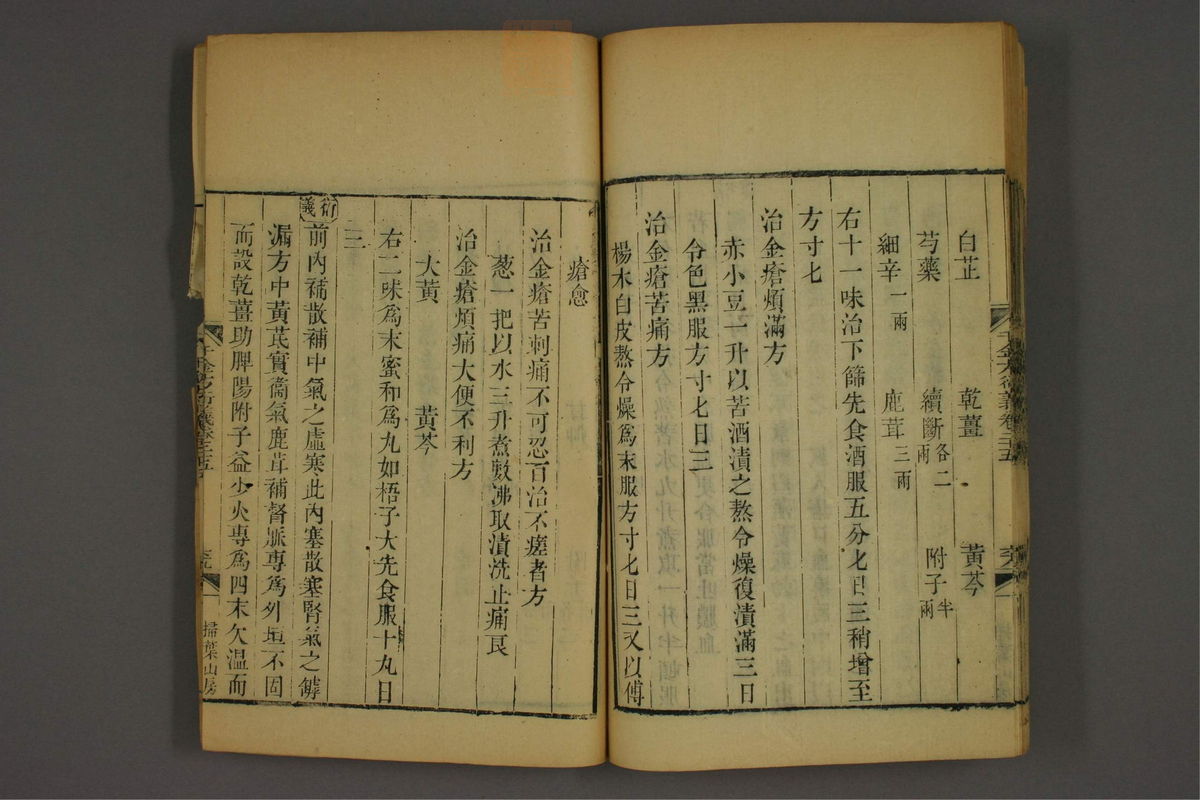 白芷 乾薑 黃芩
芍藥 續斷各二兩 附子半兩
細辛一兩 鹿茸三兩
右十一味治下篩先食酒服五分匕日三稍增至
方寸匕
治金瘡煩滿方
赤小豆一升以苦酒漬之熬令燥復漬滿三日
令色黑服方寸匕日三
治金瘡苦痛方
楊木白皮熬令燥爲末服方寸匕日三又以傅
瘡愈
治金瘡苦刺痛不可忍百治不瘥者方
葱一把以水三升煮數沸取漬洗止痛良
治金瘡煩痛大便不利方
大黃 黃芩
右二味爲末蜜和爲丸如梧子大先食服十丸日
三
衍義
前內補散補中氣之虛寒此內塞散塞腎氣之罅
漏方中黃芪實衞氣鹿茸補督脈專爲外垣不固
而設乾薑助脾陽附子益少火專爲四末欠溫而
千金方衍義卷二十五
掃葉山房